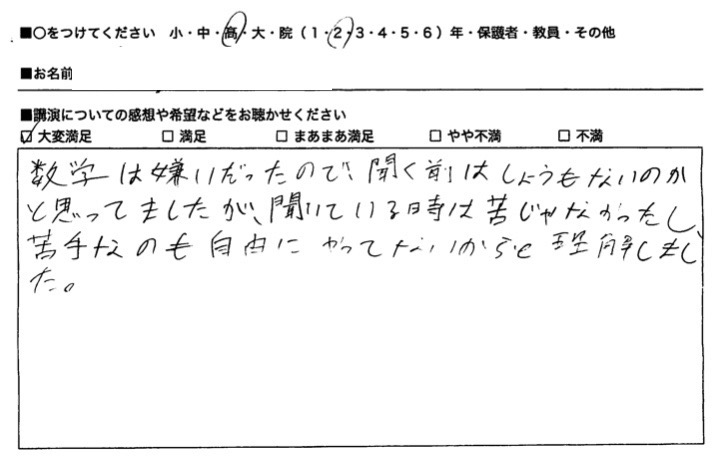 ■○をつけてください 小・中・高・大・院（1・2・3・4・5・6）年・保護者・教員・その他
■お名前
■講演についての感想や希望などをお聴かせください
☑ 大変満足 □ 満足 □ まあまあ満足 □ やや不満 □ 不満
数学は嫌いだったので、聞く前はしょうもないのか
と思ってましたが、聞いている時は苦じゃなかったし、
苦手なのも自由にやってないからと理解しまし
た。